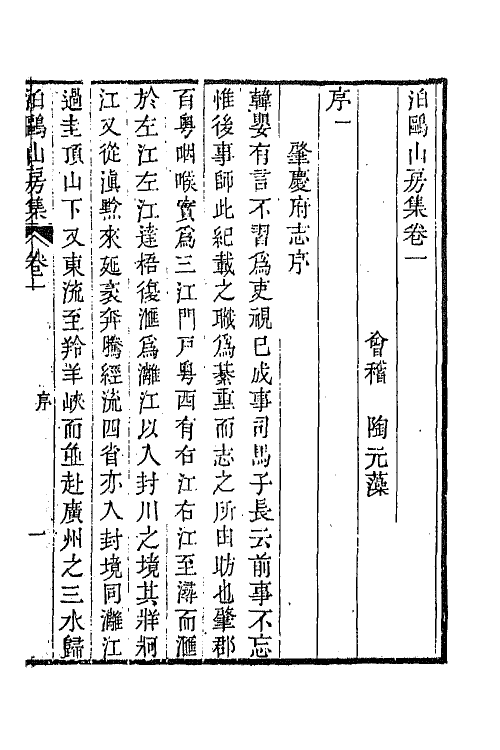 泊鷗山房集卷一
會稽　陶元藻
序一
肇慶府志序
韓嬰有言不習爲吏視已成事司馬子長云前事不忘
惟後事師此紀載之職爲綦重而志之所由昉也肇郡
百粤咽喉實爲三江門戸粤西有右江右江至潯而滙
於左江左江達梧復滙爲灕江以入封川之境其牂牁
江又從滇黔來延袤奔騰經流四省亦入封境同灕江
過圭頂山下又東流至羚羊峽而並赴廣州之三水歸
泊鷗山房集　卷一　序　一